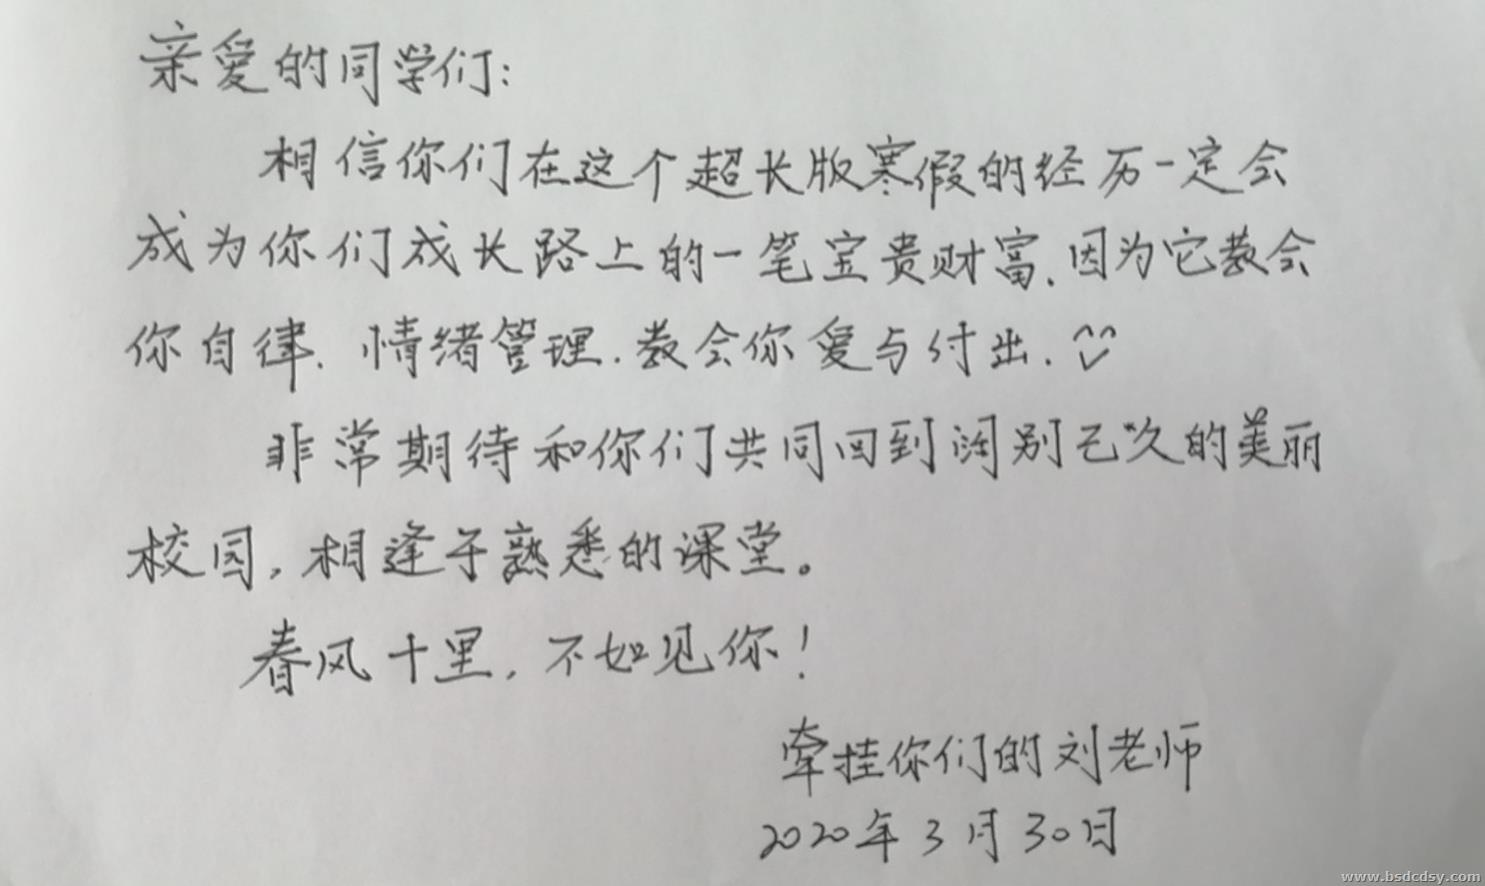 亲爱的同学们:
相信你们在这个超长版寒假的经历一定会
成为你们成长路上的一笔宝贵财富.因为它教会
你自律.情绪管理.教会你爱与付出.^^
非常期待和你们共同回到阔别已久的美丽
校园,相逢于熟悉的课堂。
春风十里,不如见你!
牵挂你们的刘老师
2020年3月30日
www.bsdcdsy.com